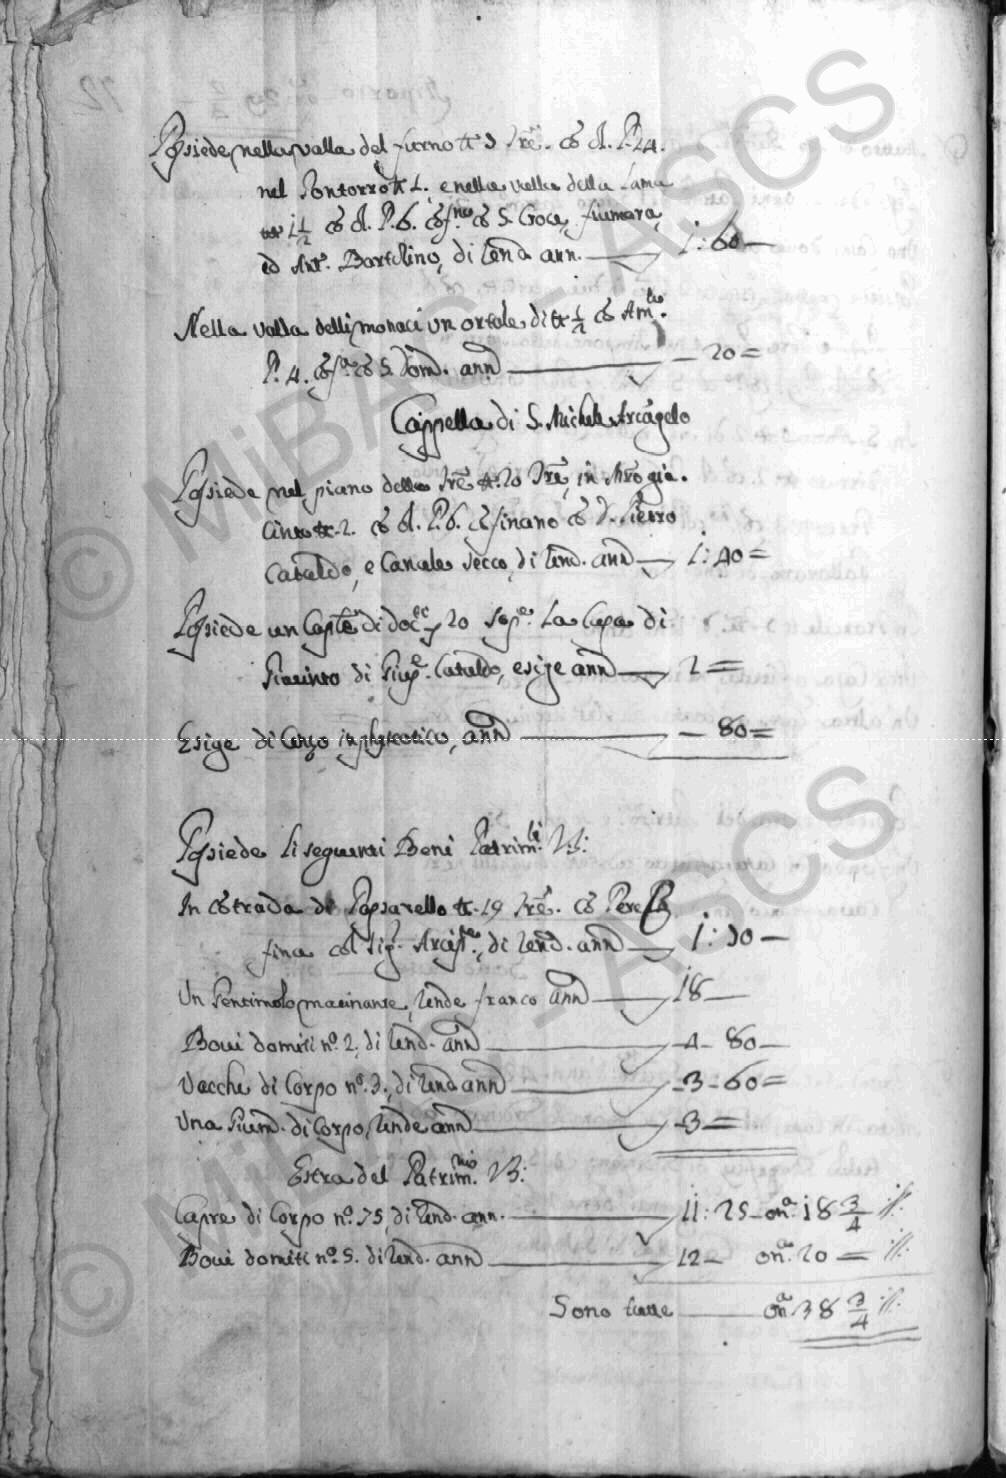 Possiede nella valla del furno tt. 3 Tre. co d. P. 24.
nel Pontorro tt. 1. e nella valla della Lama
1 1/2 co d. P. 6. cof.no co S. Croce, fiumara,
ed Ant.o Bartolino, di rend. ann. 1: 60 —
Nella valla delli monaci un ortale di tt. 1/2 co Am.
P. 4. cof.a co S. Dom. ann — 20 =
Cappella di S. Michele Arcãgelo
Possiede nel piano delle tt. 20 Tre, in
tt. 2. co d. P. 6. cofinano co d. Pietro
Cataldo, e Canale secco, di rend. ann 1: 40 =
Possiede un Cap.le di doc. 20 sop.a la Casa di
Giacinto di Gius.e Cataldo, esige ann 2 =
Esige di Censo ann — 80 =
Possiede li seguenti Beni Patrim.li V3:
In cõtrada di Passarello tt. 19 Tre. co Pere
fina col Sig. Arcip.te, di rend. ann 1: 30 —
Un Sentimolo macinante, rende franco ann 18 —
Bovi domiti n.o 2. di rend. ann 4 – 80 —
Vacche di Corpo n.o 3. di rend ann 3 – 60 =
Una di Corpo, rende ann 3 =
Estra del Patrim.nio V3:
Capre di Corpo n.o 75, di rend. ann. 11: 25 — on.a 18 3/4
Bovi domiti n.o 5. di rend. ann 12 — on.a 20 =
Sono tutte on.a 38 3/4
© MiBAC - ASCS
© MiBAC - ASCS